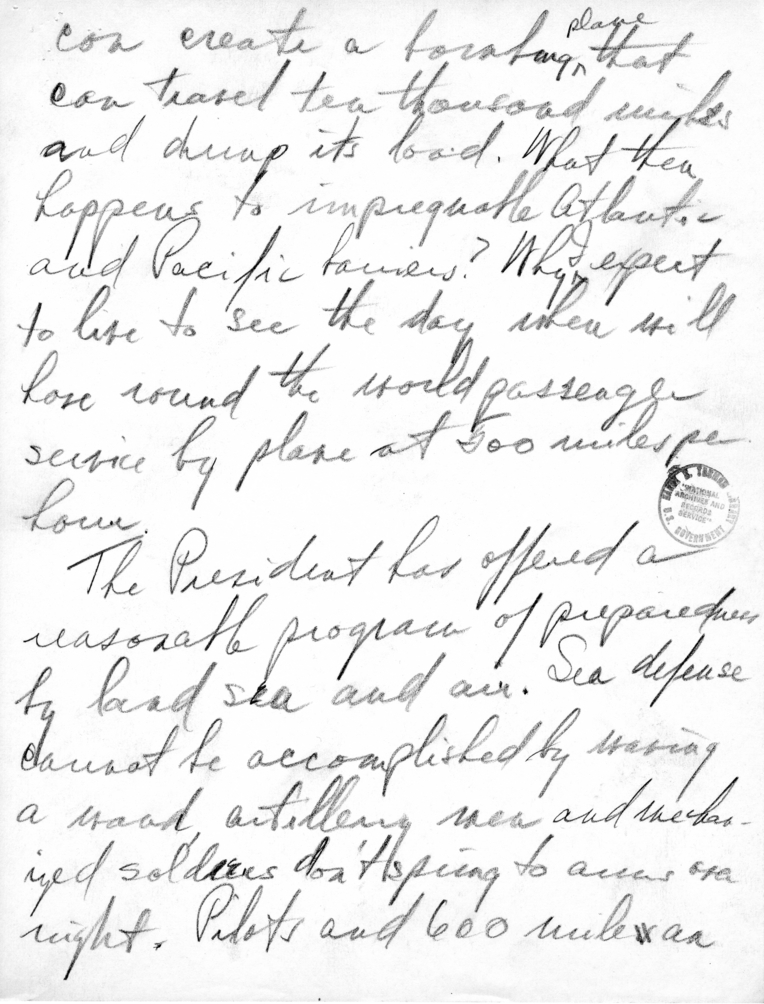 can create a bombing plane that
can travel ten thousand miles
and dump its load. What then
happens to impregnable Atlantic
and Pacific barriers? Why I expect
to live to see the day when will
have round the world passenger
service by plane at 500 miles pe
hour.
HARRY S. TRUMAN LIBRARY
"NATIONAL
ARCHIVES AND
RECORDS
SERVICE"
U.S. GOVERNMENT
The President has offered a
reasonable program of preparedness
by land sea and air. Sea defense
cannot be accomplished by waving
a wand, artillery men and mechan-
ized soldiers don't spring to arms over
night. Pilots and 600 miles an